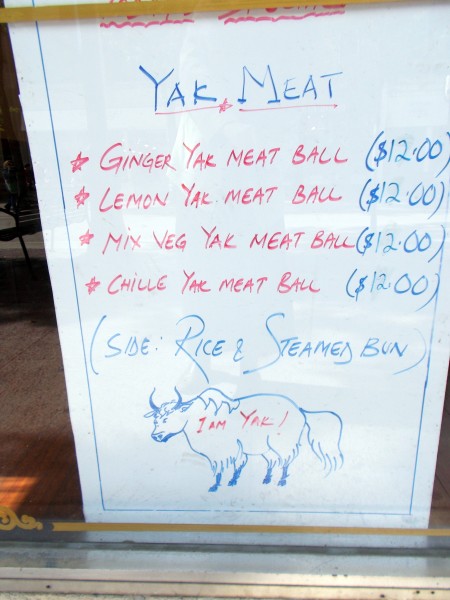 YAK MEAT
GINGER YAK MEAT BALL ($12.00)
LEMON YAK MEAT BALL ($12.00)
MIX VEG YAK MEAT BALL ($12.00)
CHILLE YAK MEAT BALL ($12.00)
(SIDE: RICE & STEAMED BUN)
I AM YAK!